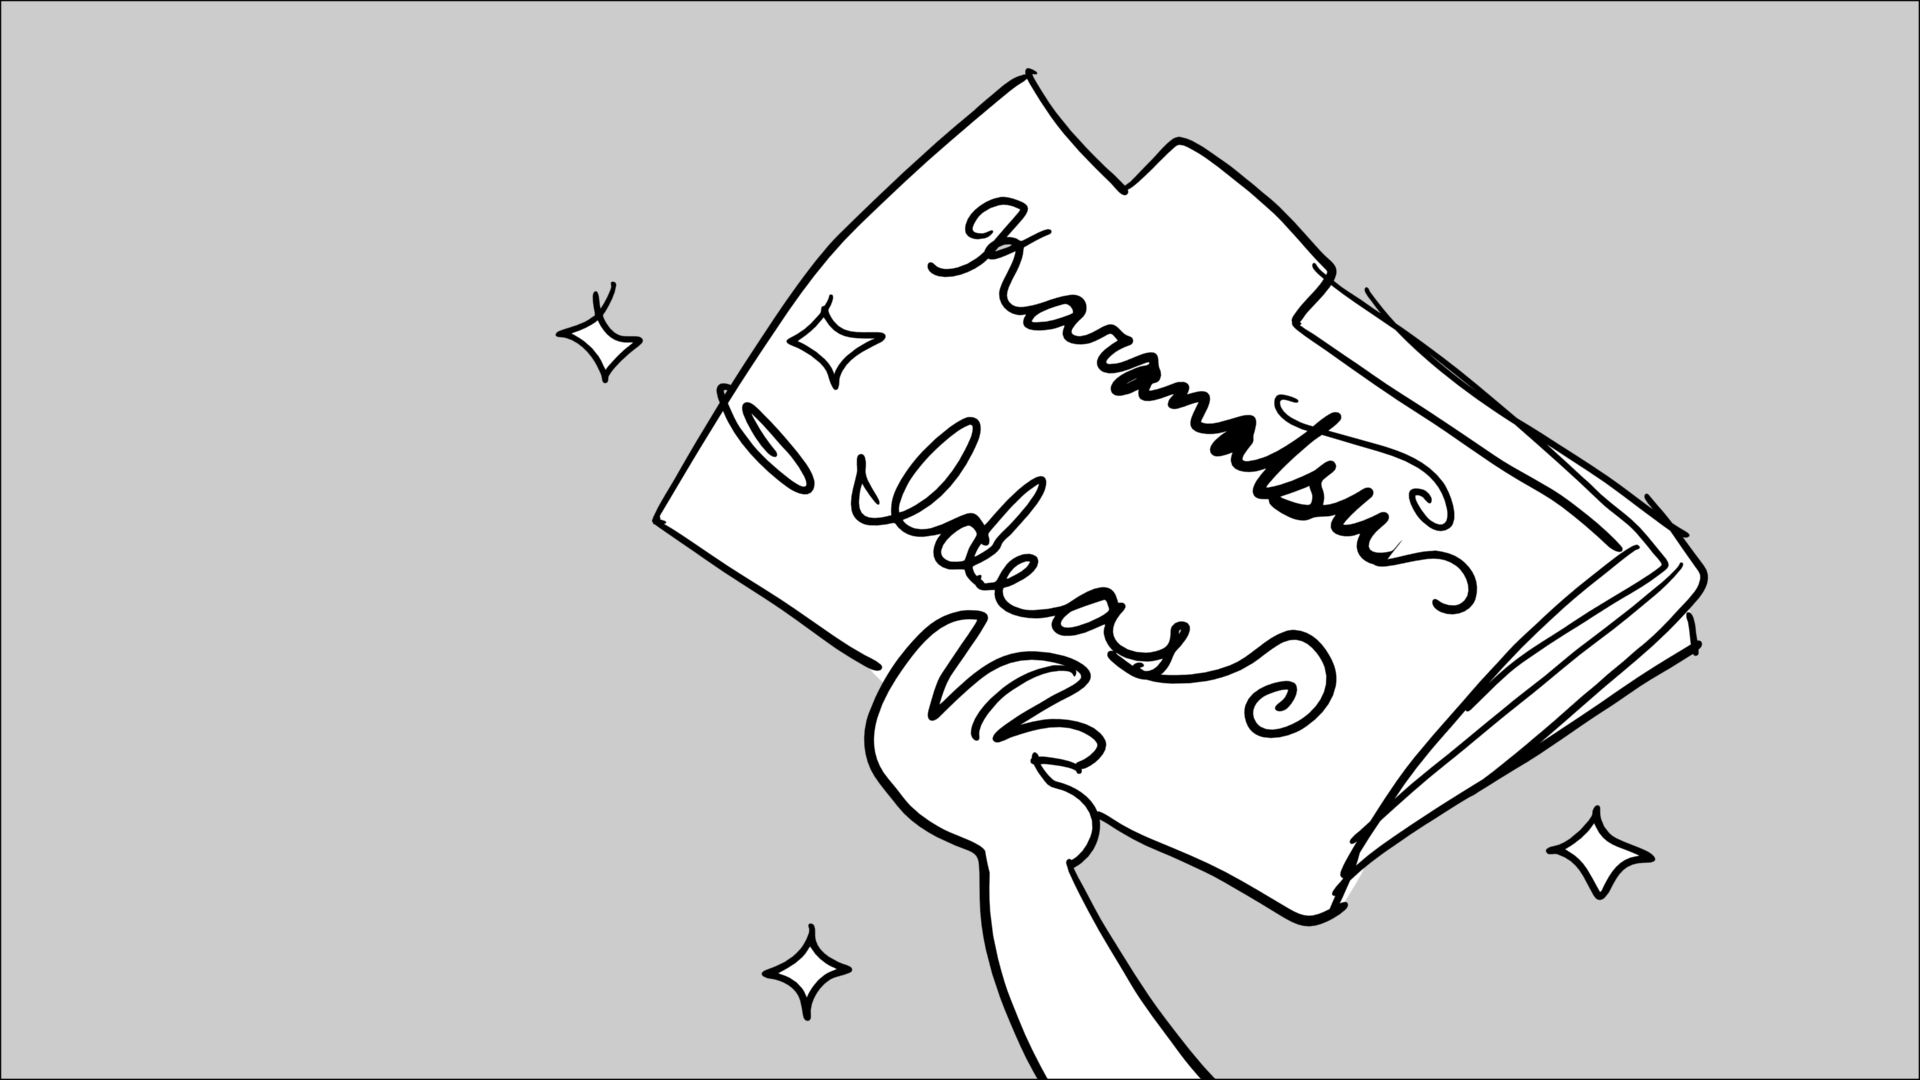 Karamatsu
Ideas